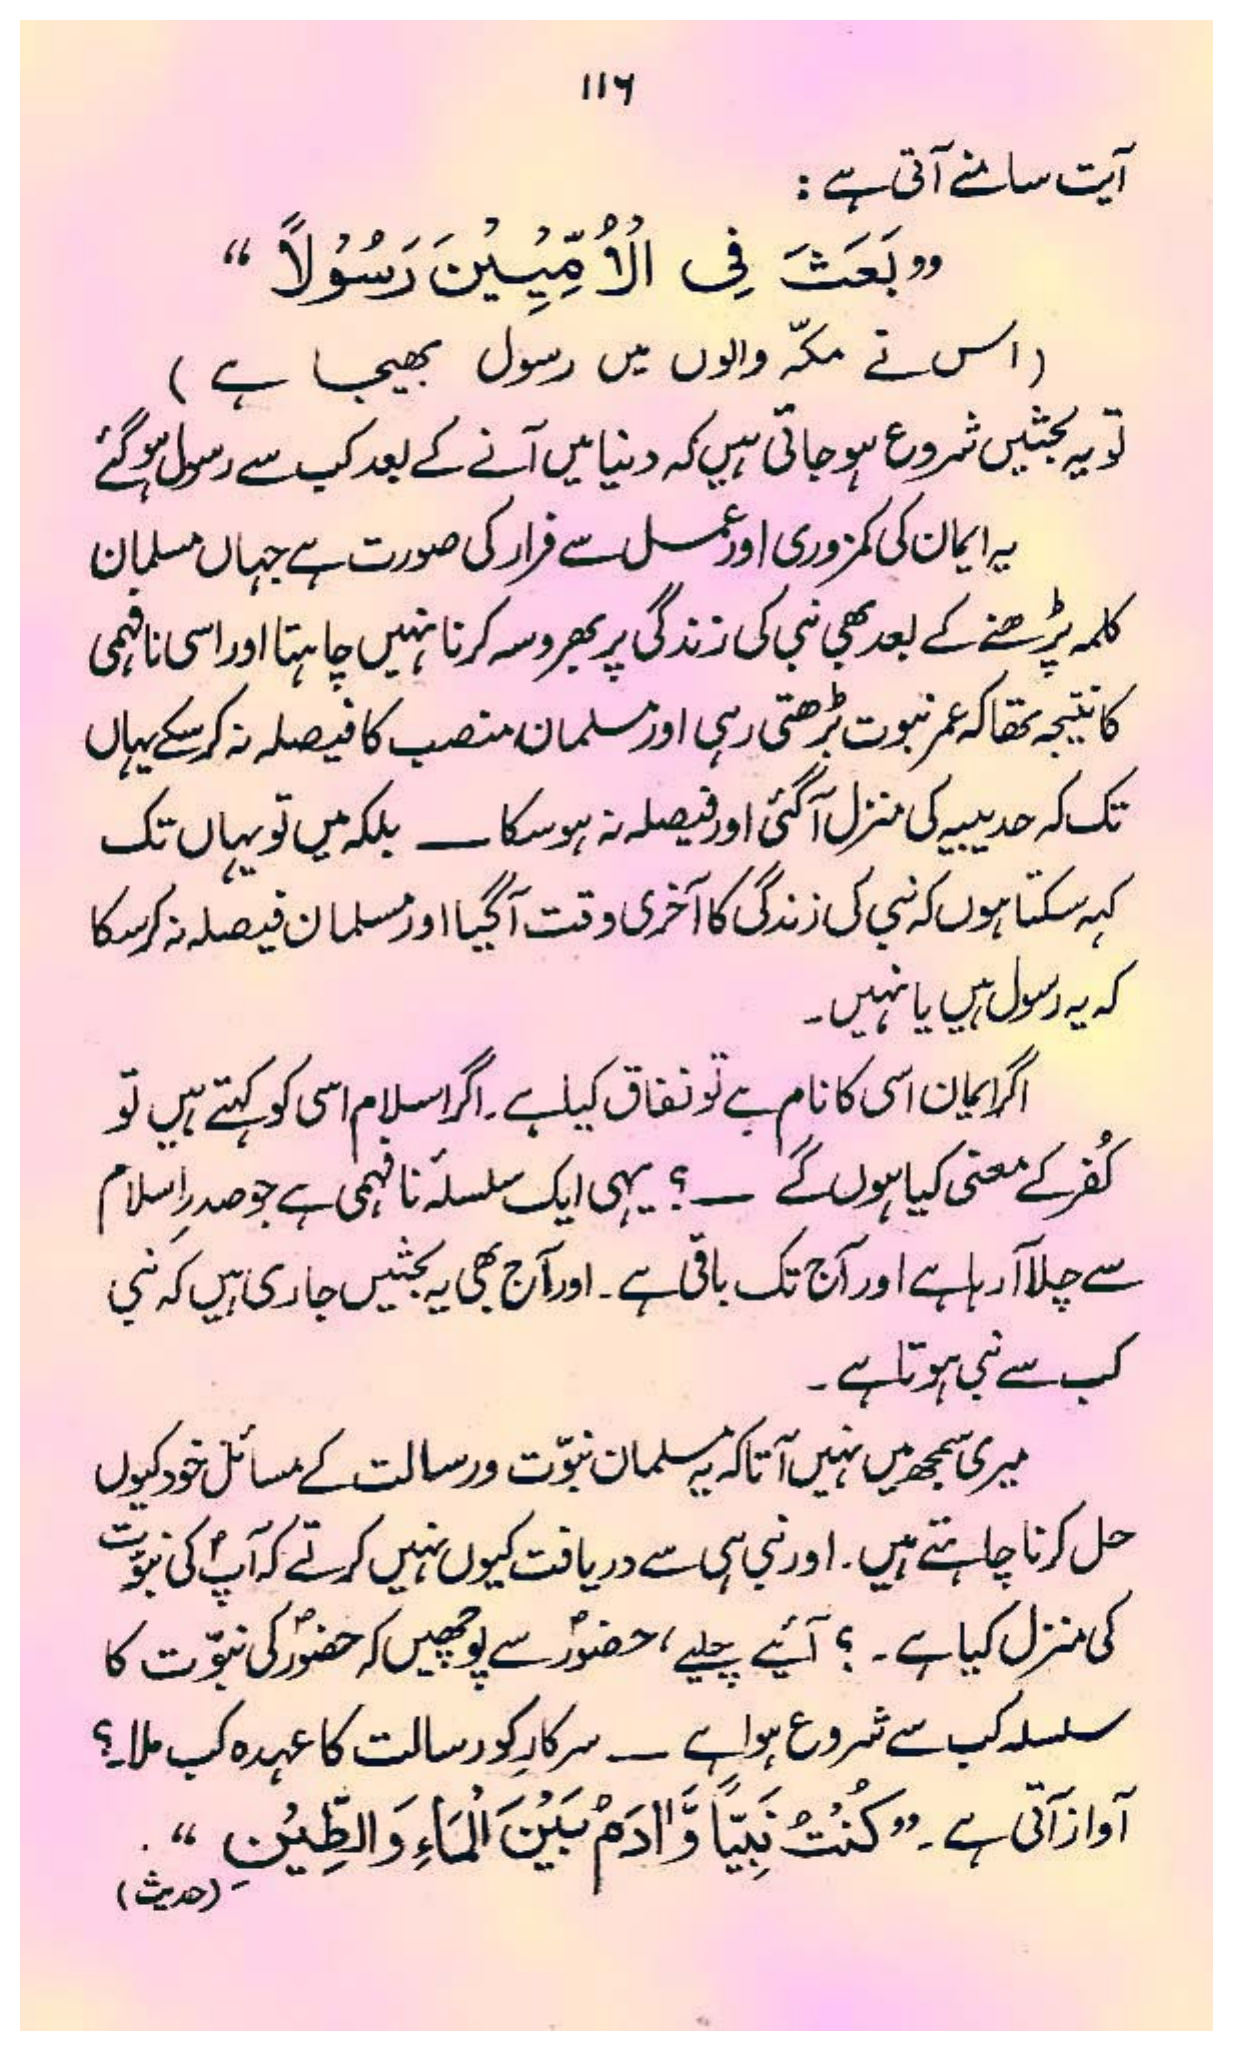 ۱۱۶
آیت سامنے آتی ہے :
”بَعَثَ فِی الْاُمِّیِیْنَ رَسُوْلاً“
(اس نے مکّہ والوں میں رسول بھیجا ہے)
تو یہ بحثیں شروع ہو جاتی ہیں کہ دنیا میں آنے کے بعد کب سے رسول ہو گئے
یہ ایمان کی کمزوری اور عمل سے فرار کی صورت ہے جہاں مسلمان
کلمہ پڑھنے کے بعد بھی نبی کی زندگی پر بھروسہ کرنا نہیں چاہتا اور اسی نافہمی
کا نتیجہ تھا کہ عمر نبوت بڑھتی رہی اور مسلمان منصب کا فیصلہ نہ کر سکے یہاں
تک کہ حدیبیہ کی منزل آ گئی اور فیصلہ نہ ہو سکا — بلکہ میں تو یہاں تک
کہہ سکتا ہوں کہ نبی کی زندگی کا آخری وقت آ گیا اور مسلمان فیصلہ نہ کر سکا
کہ یہ رسول ہیں یا نہیں۔
اگر ایمان اسی کا نام ہے تو نفاق کیا ہے۔ اگر اسلام اسی کو کہتے ہیں تو
کُفر کے معنی کیا ہوں گے —؟ یہی ایک سلسلۂ نافہمی ہے جو صدرِ اسلام
سے چلا آ رہا ہے اور آج تک باقی ہے۔ اور آج بھی یہ بحثیں جاری ہیں کہ نبی
کب سے نبی ہوتا ہے۔
میری سمجھ میں نہیں آتا کہ یہ مسلمان نبوّت و رسالت کے مسائل خود کیوں
حل کرنا چاہتے ہیں۔ اور نبی ہی سے دریافت کیوں نہیں کرتے کہ آپؐ کی نبوّت
کی منزل کیا ہے۔؟ آئیے چلیے، حضورؐ سے پوچھیں کہ حضورؐ کی نبوّت کا
سلسلہ کب سے شروع ہوا ہے — سرکارِ کو رسالت کا عہدہ کب ملا۔؟
آواز آتی ہے۔ ”کُنْتُ نَبِیّاً وَّاٰدَمُ بَیْنَ الْمَاءِ وَالطِّیْنِ“۔
(حدیث)